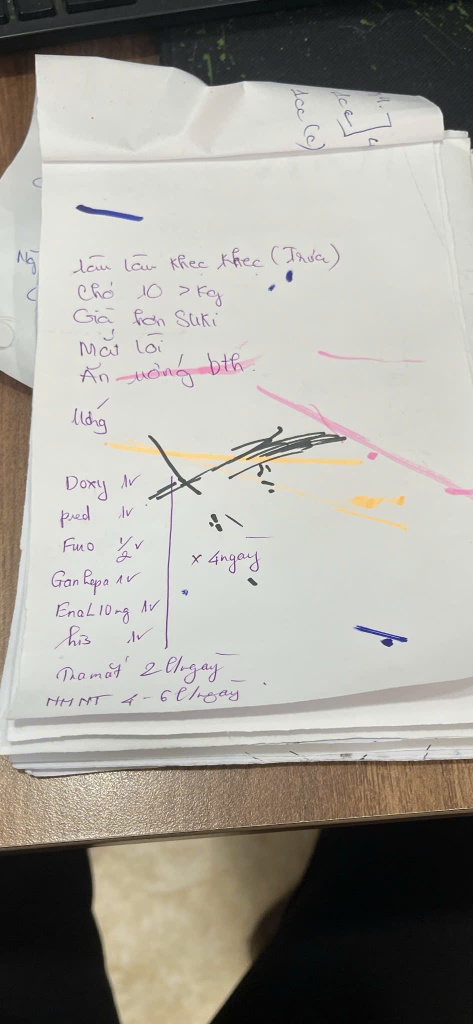 1cc
1cc (c)
Ng
lâu lâu khẹc khẹc (Trưa)
Chó 10 > kg
Già hơn Suki
Mắt lồi
Ăn uống bth.
Uống
Doxy 1v
pred 1v
Furo 1/2 v
Ganhepa 1v
Enal 10mg 1v
his 1v
x 4 ngày
Tra mắt 2 l/ngày
NMNT 4-6 l/ngày